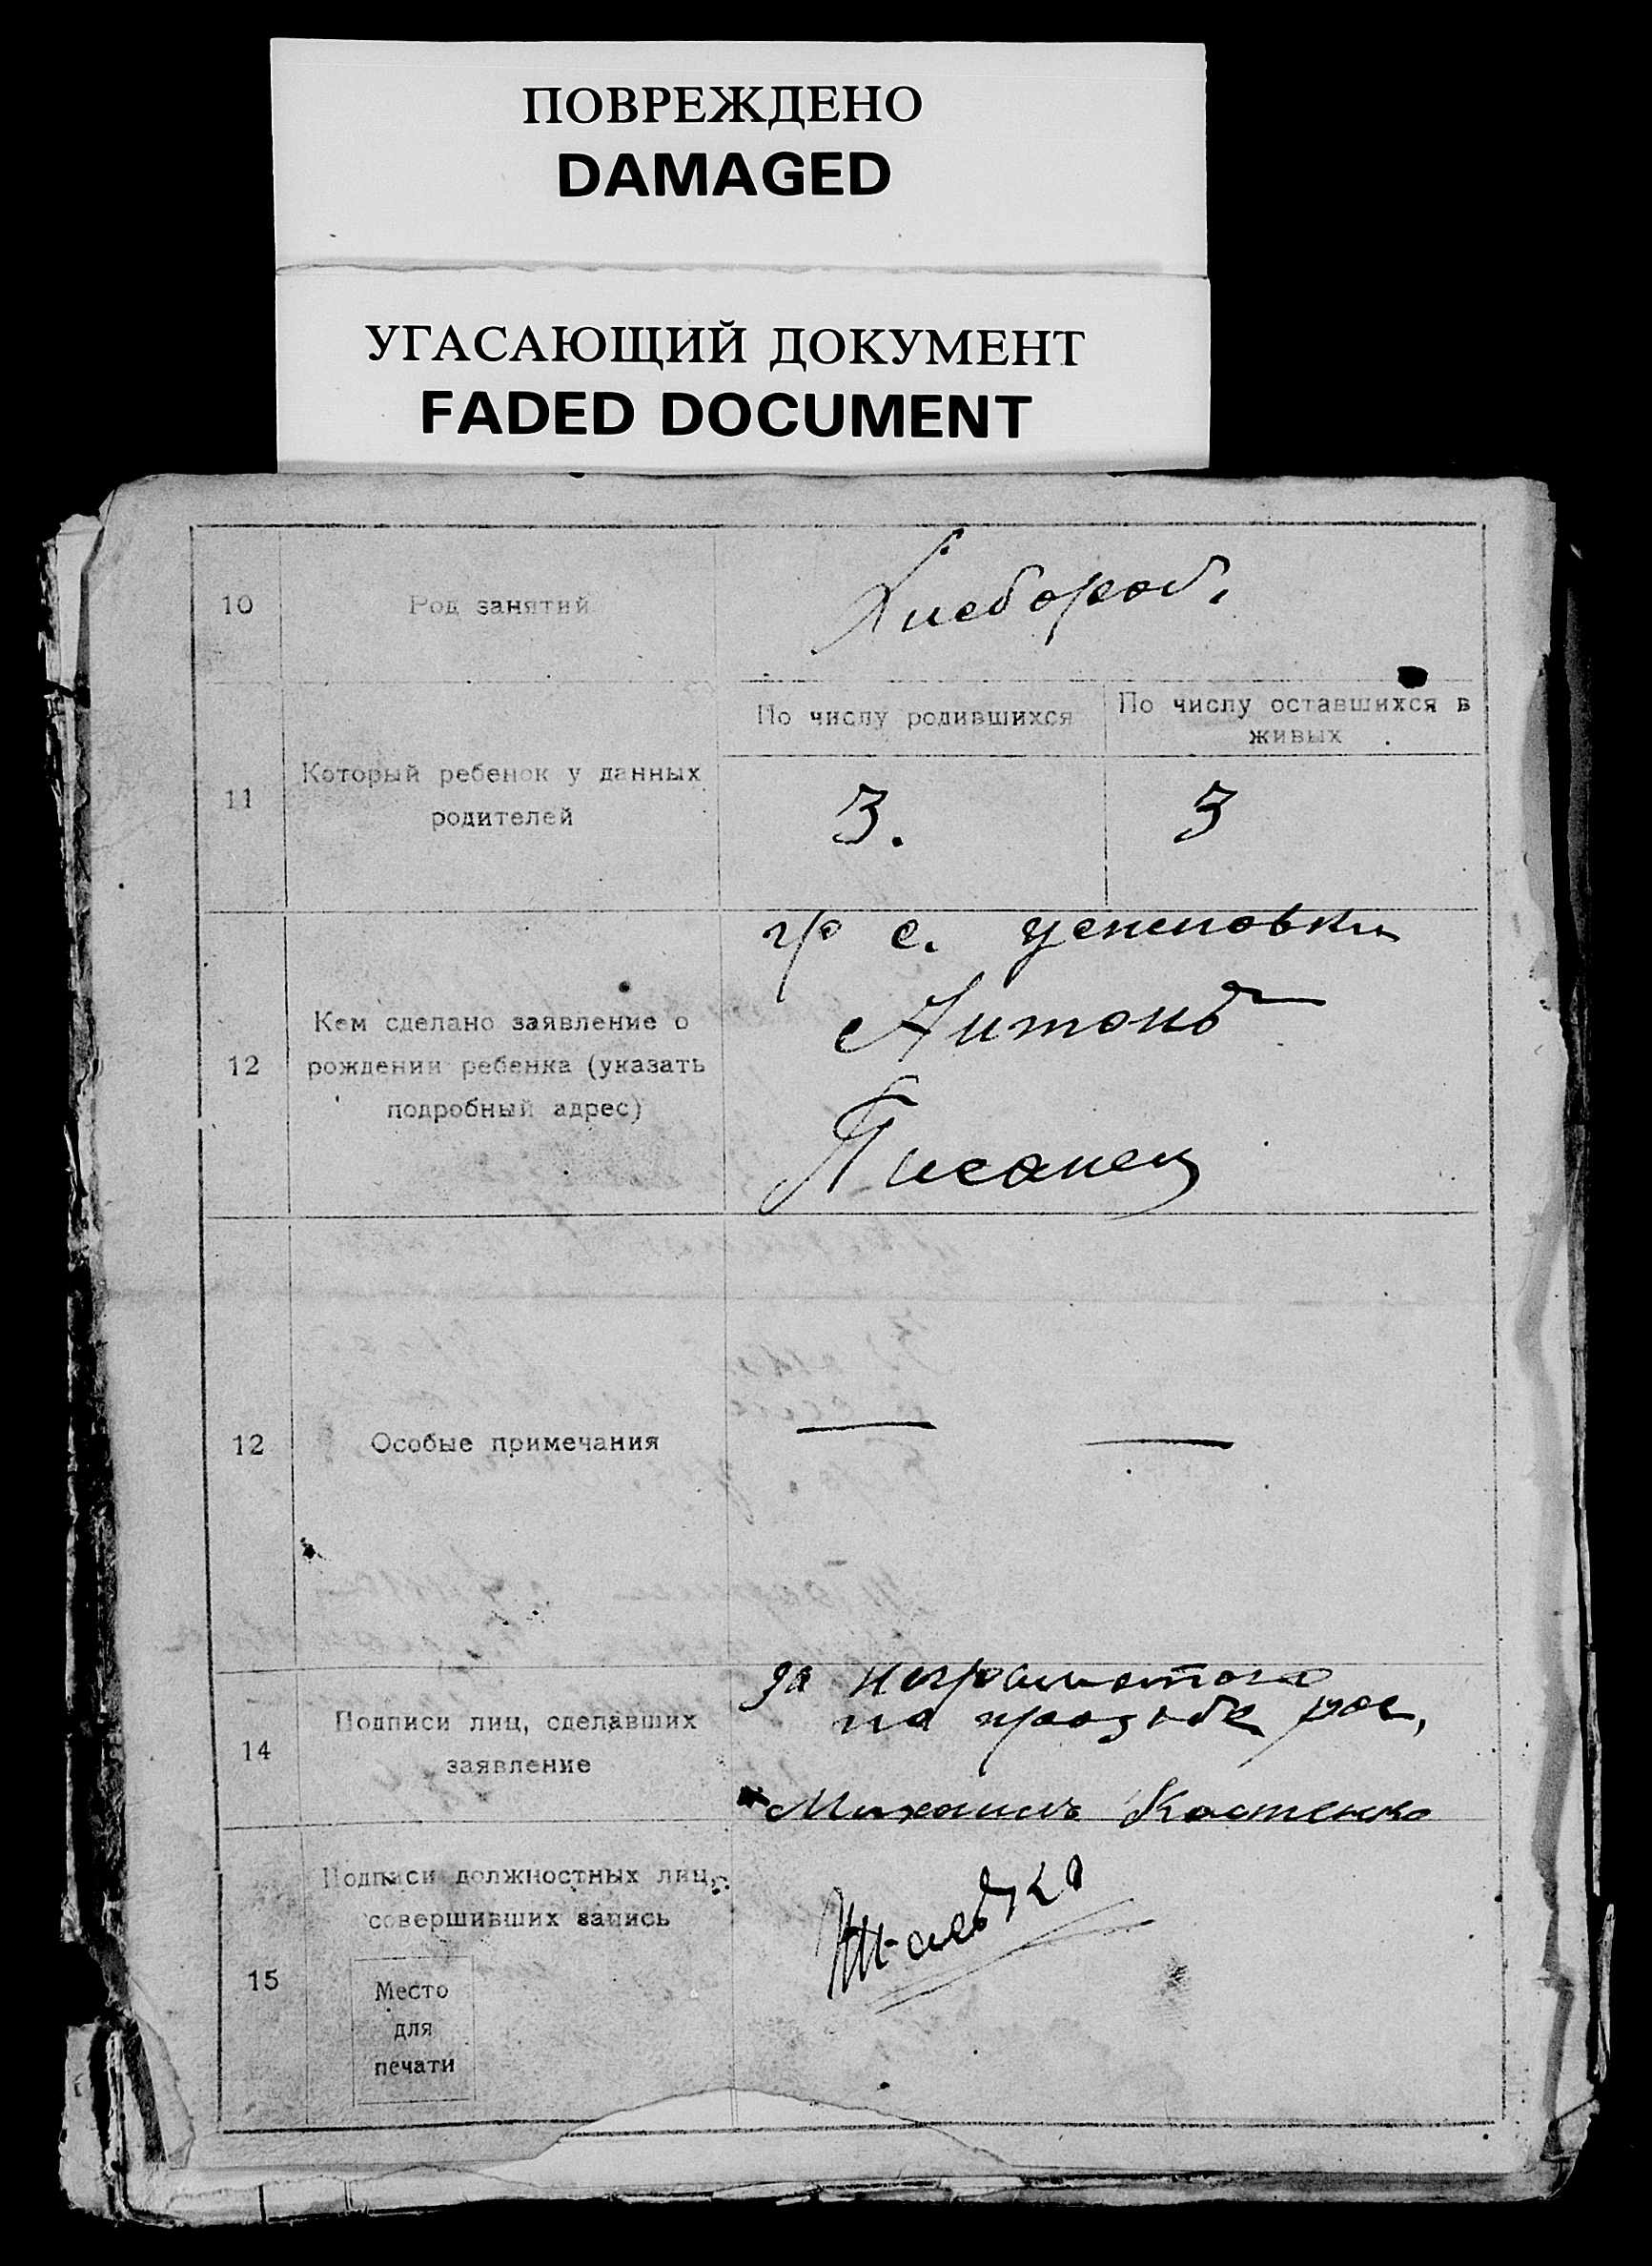 ПОВРЕЖДЕНО
DAMAGED
УГАСАЮЩИЙ ДОКУМЕНТ
FADED DOCUMENT
10 Род занятий Хлебороб.
По числу родившихся По числу оставшихся в живых
11 Который ребенок у данных родителей 3. 3
гр с. Успеновки
12 Кем сделано заявление о рождении ребенка (указать подробный адрес)
Антонъ
Писанец
12 Особые примечания — —
за неграмотого
14 Подписи лиц, сделавших заявление
по прозьбе рос,
Михаилъ Костенко
15 Подписи должностных лиц, совершивших запись
Место
для
печати